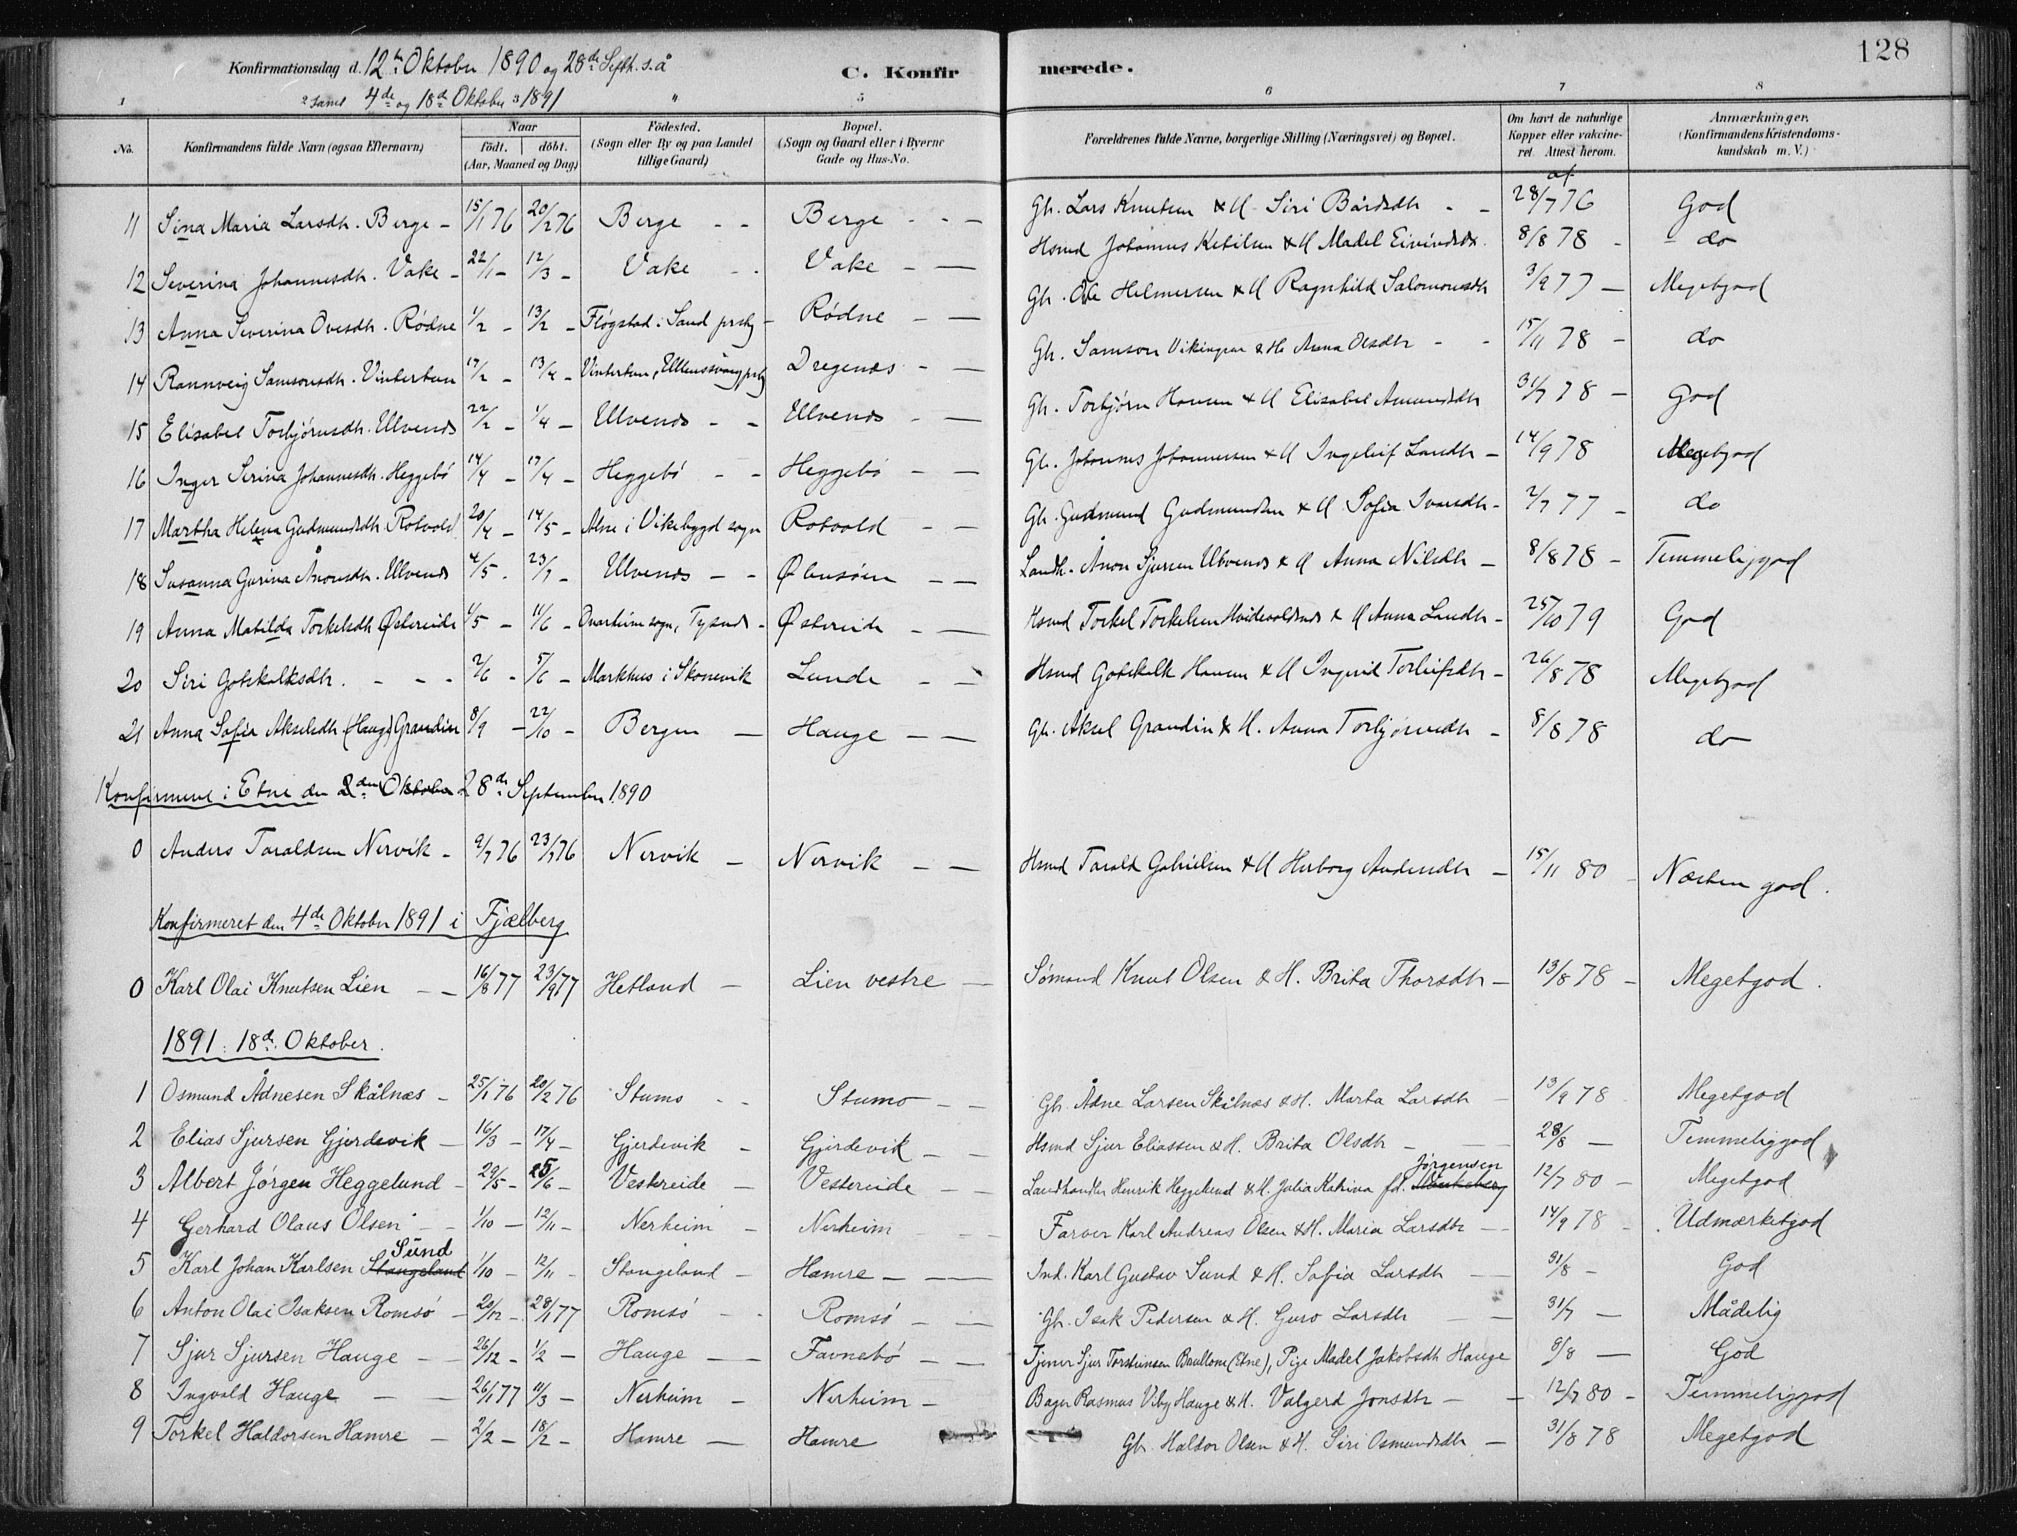 128
Konfirmationsdag d. 12te Oktober 1890 og 28de Septb. s.å C. Konfirmerede.
samt 4de og 18de Oktober 1891
1 2 3 " 5 6 7 8
No. Konfirmandens fulde Navn (ogsaa Efternavn) Naar födt. döbt. (Aar, Maaned og Dag) Födested. (Sogn eller By og paa Landet tillige Gaard) Bopæl. (Sogn og Gaard eller i Byerne Gade og Hus-No. Forældrenes fulde Navne, borgerlige Stilling (Næringsvei) og Bopæl. Om havt de naturlige Kopper eller vakcineret. Attest herom. Anmærkninger. (Konfirmandens Kristendomskundskab m. V.)
11 Sina Maria Larsdtr. Berge - 15/1 76 20/2 76 Berge - - Berge - - - Gbr. Lars Knutsen & H Siri Bårdsdtr - - 28/7 76 God
12 Severina Johannesdtr. Vake - 22/1 - 12/3 - Vake - - Vake - - Hsmd Johannes Ketilsen & H Madel Eivindsdtr. 8/8 78 - do
13 Anna Severina Ovesdtr. Rødne 1/2 - 13/2 - Fløgstad i Sand prstg - Rødne - - Gbr. Ove Helmersen & H Ragnhild Salomonsdtr 3/9 77 - Megetgod
14 Rannveig Samsonsdtr. Vintertun 17/2 - 13/4 - Vintertun, Ullensvang prstg Dregenes - - Gbr. Samson Vikingsen & H Anna Olsdtr - - 15/11 78 - do
15 Elisabet Torbjørnsdtr. Ulvenes 22/2 - 1/4 - Ulvenes - - Ulvenes - - Gbr. Torbjørn Hansen & H Elisabet Amundsdtr 31/7 78 - God
16 Inger Serina Johannesdtr. Heggebö 14/4 - 17/4 - Heggebö - - Heggebö - - Gbr. Johannes Johannessen & H Ingeleif Larsdtr - 14/9 78 Megetgod
17 Martha Helena Gudmundsdtr Rotvold 20/4 - 14/5 - Alne i Vikebygd sogn Rotvold - - Gbr. Gudmund Gudmundsen & H Sofia Ivarsdtr - 2/7 77 - do
18 Susanna Gurina Ånonsdtr. Ulvenes 4/5 - 23/7 - Ulvenes - - Ølensøen - - Landh. Ånon Sjursen Ulvenes & H Anna Nilsdtr - 8/8 78 - Temmeliggod
19 Anna Matilda Torkelsdtr Østereide 4/5 - 11/6 - Onarheim sogn, Tysnes - Østereide - - Hsmd Torkel Torkelsen Hvidevoldsnes & H Anna Larsdtr - 25/10 79 God
20 Siri Gotskalksdtr. - - - 2/6 - 5/6 - Markhus i Skonevik Lunde - - Hsmd Gotskalk Hansen & H Ingrid Torleifsdtr - 26/8 78 Megetgod
21 Anna Sofie Akselsdtr (Hauge) Grandin 8/9 - 22/10 - Bergen - Hauge - - Gbr. Aksel Grandin & H. Anna Torbjørnsdtr - 8/8 78 do
Konfirmeret i Etne den 2den Oktober 28de September 1890
0 Anders Taraldsen Nervik - 9/7 76 23/7 76 Nervik - Nervik - - Hsmd Tarald Gabrielsen & H Herborg Andersdtr - 15/11 80 - Næsten god.
Konfirmeret den 4de Oktober 1891 i Fjælberg
0 Karl Olai Knutsen Lien - - 16/8 77 23/9 77 Hetland - Lien vestre - Sømand Knut Olsen & H. Brita Thorsdtr - 13/8 78 - Megetgod.
1891. 18de Oktober.
1 Osmund Ådnesen Skålnæs - 25/1 76 20/2 76 Stumo - - Stumo - - Gbr. Ådne Larsen Skålnæs & H. Marta Larsdtr - 13/9 78 Megetgod
2 Elias Sjursen Gjerdevik - 16/3 - 17/4 - Gjerdevik - Gjerdevik - - Hsmd Sjur Eliassen & H. Brita Olsdtr - - 28/8 - Temmeliggod
3 Albert Jørgen Heggelund - 29/5 - 25/6 - Vestreide - Vestreide - - Landhandler Henrik Heggelund & H. Julia Katrina fd. Jørgensen 12/7 80 - Megetgod
4 Gerhard Olaus Olsen - - 1/10 - 12/11 - Nerheim - Nerheim - - Farver Karl Andreas Olsen & H. Maria Larsdtr - 14/9 78 - Udmærketgod
5 Karl Johan Karlsen Stangeland Sund 1/10 - 12/11 - Stangeland - Hamre - - Ind. Karl Gustav Sund & H. Sofia Larsdtr - 31/8 - God
6 Anton Olai Isaksen Romsö - 20/12 - 28/1 77 Romsö - - Romsö - - Gbr. Isak Pedersen & H. Guro Larsdtr - - 31/7 - Mådelig
7 Sjur Sjursen Hauge - - 26/12 - 1/2 - Hauge - - Favnebö - - Tjener Sjur Torsteinsen (Etne), Pige Madel Jakobsdtr Hauge 9/8 - God
8 Ingvald Hauge - - 26/1 77 11/3 - Nerheim - Nerheim - Bager Rasmus Viby Hauge & H. Valgerd Jonsdtr - - 12/7 80 - Temmeliggod
9 Torkel Haldorsen Hamre - 2/2 - 18/2 - Hamre - Hamre Gbr. Haldor Olsen & H. Siri Osmundsdtr - 31/8 78 Megetgod